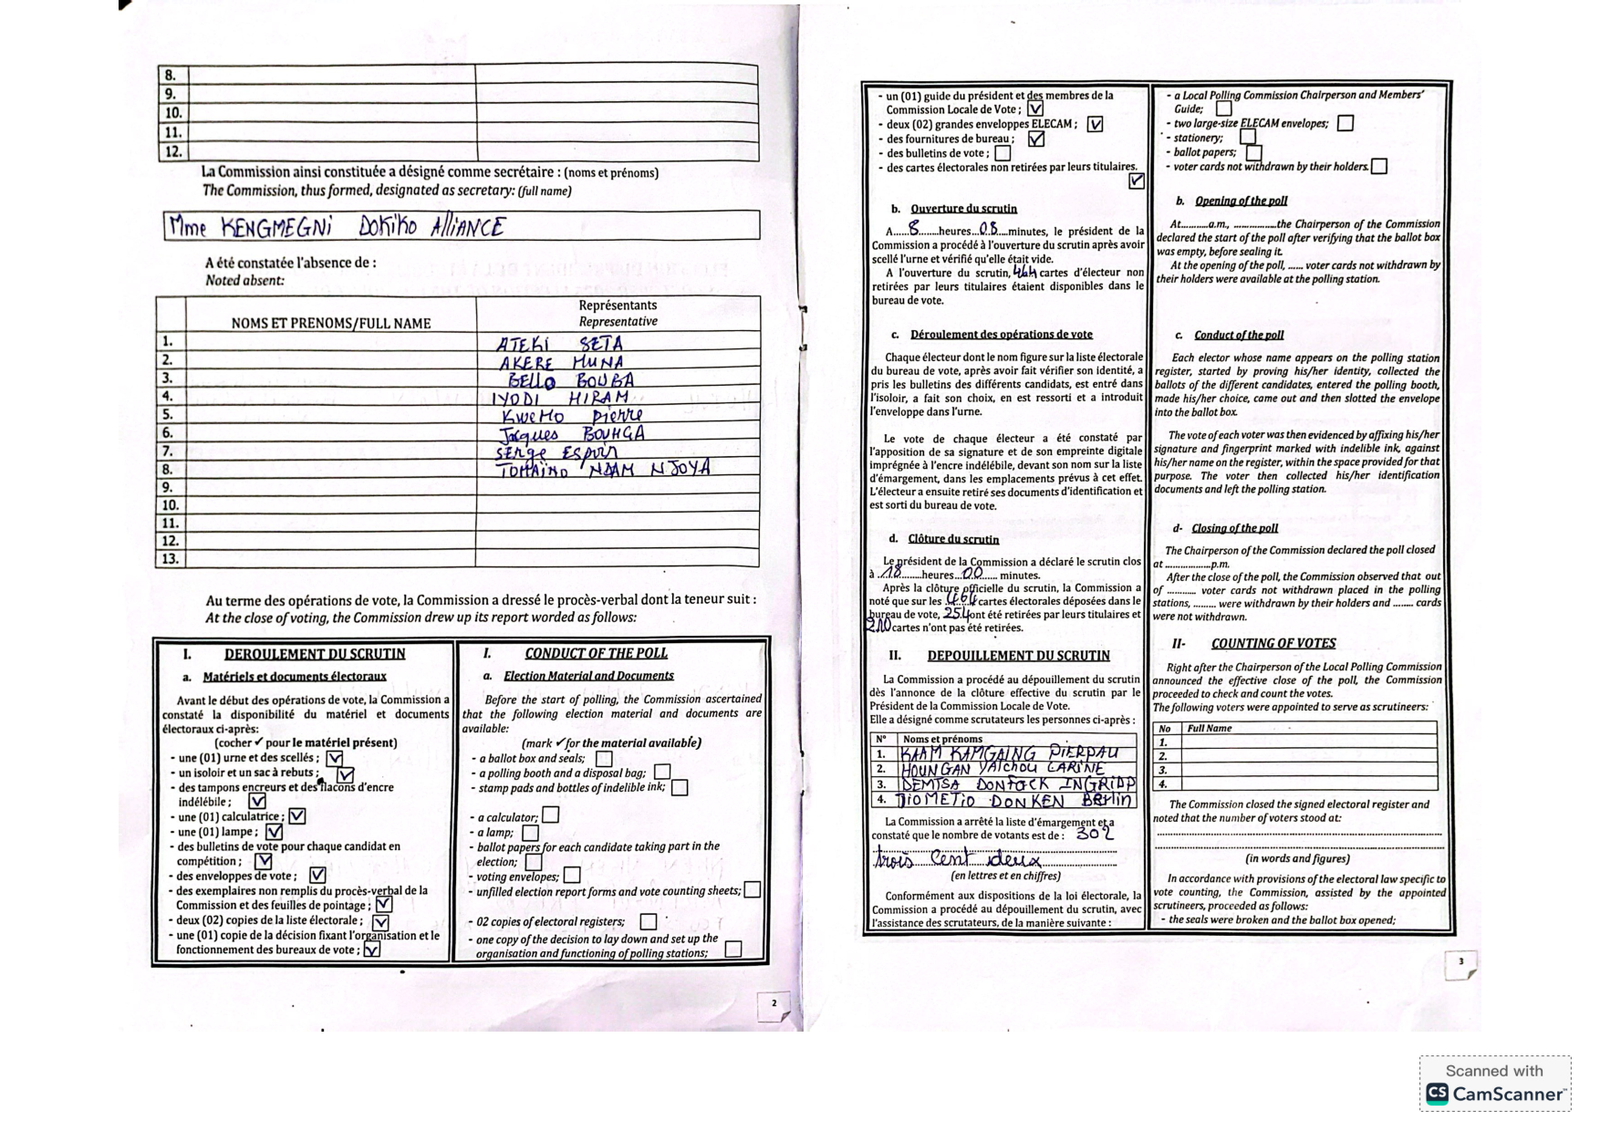 8.
9.
10.
11.
12.
La Commission ainsi constituée a désigné comme secrétaire : (noms et prénoms)
The Commission, thus formed, designated as secretary: (full name)
Mme KENGMEGNI DOKIKO AlliANCE
A été constatée l'absence de :
Noted absent:
NOMS ET PRENOMS/FULL NAME
Représentants
Representative
1. ATEKI SETA
2. AKERE MUNA
3. BELLO BOUBA
4. IYODI HIRAM
5. KWEMO Pierre
6. Jacques BOUHGA
7. SERge ESPoir
8. TOMAÏNO NDAM NJOYA
9.
10.
11.
12.
13.
Au terme des opérations de vote, la Commission a dressé le procès-verbal dont la teneur suit :
At the close of voting, the Commission drew up its report worded as follows:
I. DEROULEMENT DU SCRUTIN
a. Matériels et documents électoraux
Avant le début des opérations de vote, la Commission a
constaté la disponibilité du matériel et documents
électoraux ci-après:
(cocher ✓ pour le matériel présent)
- une (01) urne et des scellés ; ☑
- un isoloir et un sac à rebuts ; ☑
- des tampons encreurs et des flacons d'encre
indélébile ; ☑
- une (01) calculatrice ; ☑
- une (01) lampe ; ☑
- des bulletins de vote pour chaque candidat en
compétition ; ☑
- des enveloppes de vote ; ☑
- des exemplaires non remplis du procès-verbal de la
Commission et des feuilles de pointage ; ☑
- deux (02) copies de la liste électorale ; ☑
- une (01) copie de la décision fixant l'organisation et le
fonctionnement des bureaux de vote ; ☑
I. CONDUCT OF THE POLL
a. Election Material and Documents
Before the start of polling, the Commission ascertained
that the following election material and documents are
available:
(mark ✓ for the material available)
- a ballot box and seals; ☐
- a polling booth and a disposal bag; ☐
- stamp pads and bottles of indelible ink; ☐
- a calculator; ☐
- a lamp; ☐
- ballot papers for each candidate taking part in the
election; ☐
- voting envelopes; ☐
- unfilled election report forms and vote counting sheets; ☐
- 02 copies of electoral registers; ☐
- one copy of the decision to lay down and set up the
organisation and functioning of polling stations; ☐
2
- un (01) guide du président et des membres de la
Commission Locale de Vote ; ☑
- deux (02) grandes enveloppes ELECAM ; ☑
- des fournitures de bureau ; ☑
- des bulletins de vote ; ☐
- des cartes électorales non retirées par leurs titulaires.
☑
b. Ouverture du scrutin
A.....8......heures...08....minutes, le président de la
Commission a procédé à l'ouverture du scrutin après avoir
scellé l'urne et vérifié qu'elle était vide.
A l'ouverture du scrutin, 464 cartes d'électeur non
retirées par leurs titulaires étaient disponibles dans le
bureau de vote.
c. Déroulement des opérations de vote
Chaque électeur dont le nom figure sur la liste électorale
du bureau de vote, après avoir fait vérifier son identité, a
pris les bulletins des différents candidats, est entré dans
l'isoloir, a fait son choix, en est ressorti et a introduit
l'enveloppe dans l'urne.
Le vote de chaque électeur a été constaté par
l'apposition de sa signature et de son empreinte digitale
imprégnée à l'encre indélébile, devant son nom sur la liste
d'émargement, dans les emplacements prévus à cet effet.
L'électeur a ensuite retiré ses documents d'identification et
est sorti du bureau de vote.
d. Clôture du scrutin
Le président de la Commission a déclaré le scrutin clos
à ..18.......heures...00....... minutes.
Après la clôture officielle du scrutin, la Commission a
noté que sur les 464 cartes électorales déposées dans le
bureau de vote, 254 ont été retirées par leurs titulaires et
210 cartes n'ont pas été retirées.
II. DEPOUILLEMENT DU SCRUTIN
La Commission a procédé au dépouillement du scrutin
dès l'annonce de la clôture effective du scrutin par le
Président de la Commission Locale de Vote.
Elle a désigné comme scrutateurs les personnes ci-après :
N° Noms et prénoms
1. KAAM KAMGAING PIERPAU
2. HOUNGAN YATCHOU CARINE
3. DEMTSA DONFACK INGRIDD
4. TIOMETIO DONKEN BErlin
La Commission a arrêté la liste d'émargement et a
constaté que le nombre de votants est de : 302
trois cent deux
(en lettres et en chiffres)
Conformément aux dispositions de la loi électorale, la
Commission a procédé au dépouillement du scrutin, avec
l'assistance des scrutateurs, de la manière suivante :
- a Local Polling Commission Chairperson and Members'
Guide; ☐
- two large-size ELECAM envelopes; ☐
- stationery; ☐
- ballot papers; ☐
- voter cards not withdrawn by their holders. ☐
b. Opening of the poll
At..........a.m., ................the Chairperson of the Commission
declared the start of the poll after verifying that the ballot box
was empty, before sealing it.
At the opening of the poll, ...... voter cards not withdrawn by
their holders were available at the polling station.
c. Conduct of the poll
Each elector whose name appears on the polling station
register, started by proving his/her identity, collected the
ballots of the different candidates, entered the polling booth,
made his/her choice, came out and then slotted the envelope
into the ballot box.
The vote of each voter was then evidenced by affixing his/her
signature and fingerprint marked with indelible ink, against
his/her name on the register, within the space provided for that
purpose. The voter then collected his/her identification
documents and left the polling station.
d- Closing of the poll
The Chairperson of the Commission declared the poll closed
at ..................p.m.
After the close of the poll, the Commission observed that out
of ........... voter cards not withdrawn placed in the polling
stations, ......... were withdrawn by their holders and ........ cards
were not withdrawn.
II- COUNTING OF VOTES
Right after the Chairperson of the Local Polling Commission
announced the effective close of the poll, the Commission
proceeded to check and count the votes.
The following voters were appointed to serve as scrutineers:
No Full Name
1.
2.
3.
4.
The Commission closed the signed electoral register and
noted that the number of voters stood at:
(in words and figures)
In accordance with provisions of the electoral law specific to
vote counting, the Commission, assisted by the appointed
scrutineers, proceeded as follows:
- the seals were broken and the ballot box opened;
3
Scanned with
CS CamScanner